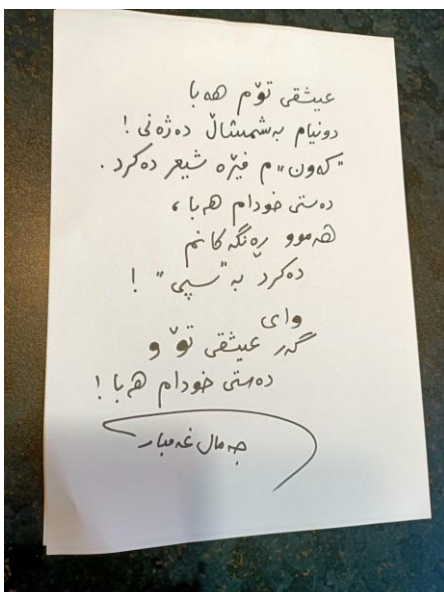 عیشقی تۆم هەبا
دونیام بە شمشاڵ دەژەنی !
"کەون" م فێرە شیعر دەکرد .
دەستی خودام هەبا ،
هەموو ڕەنگەکانم
دەکرد بە "سپی" !
وای
گەر عیشقی تۆ و
دەستی خودام هەبا !
جەمال غەمبار